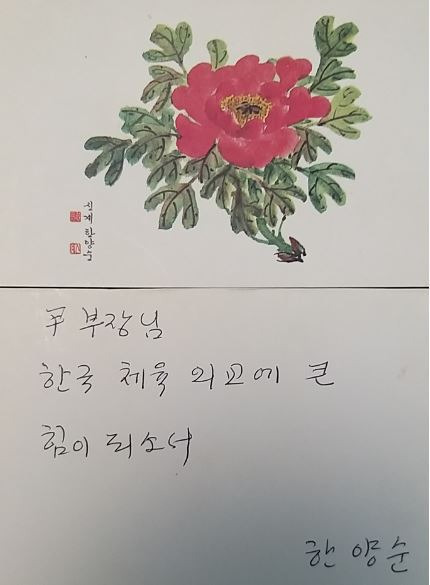 신계 한양순
尹 부장님
한국 체육 외교에 큰
힘이 되소서
한 양 순